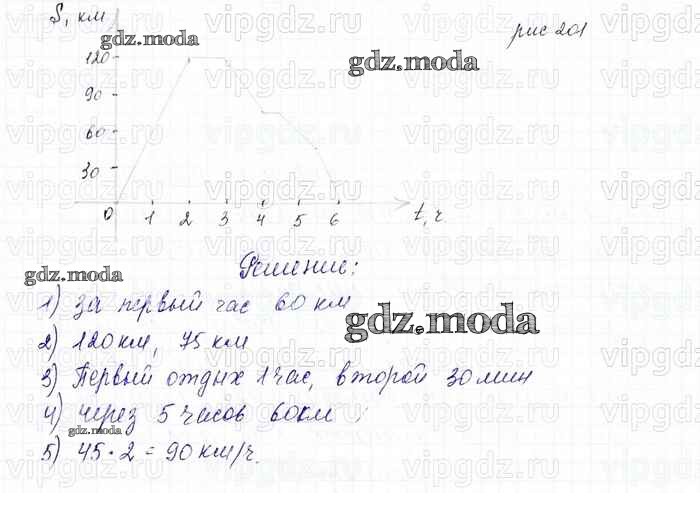 S, км
рис 201
120
90
60
30
0 1 2 3 4 5 6 t, ч
Решение:
1) за первый час 60 км
2) 120 км, 75 км
3) Первый отдых 1 час, второй 30 мин
4) через 5 часов 60 км
5) 45 · 2 = 90 км/ч.
gdz.moda
gdz.moda
gdz.moda
gdz.moda
gdz.moda
vipgdz.ru